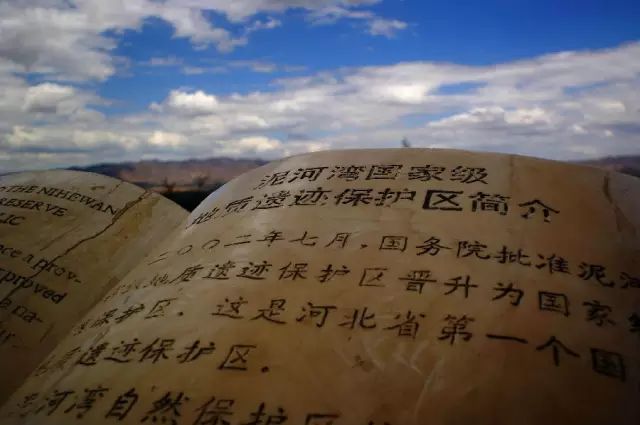 TO THE NIHEWAN
RESERVE
LIC
ce a prov-
pproved
e na-
泥河湾国家级
地质遗迹保护区简介
二00二年七月，国务院批准泥河
地质遗迹保护区晋升为国家级
保护区．这是河北省第一个国
质遗迹保护区．
泥河湾自然保护区